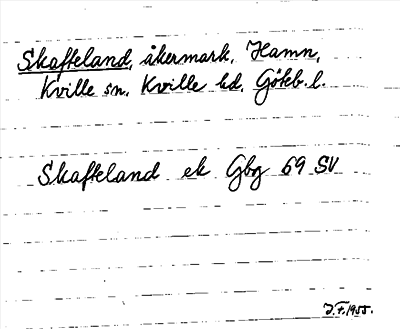 Skafteland, åkermark, Hamn,
Kville sn. Kville hd. Göteb. l.
Skafteland ek Gbg 69 SV
J.F. 1955.